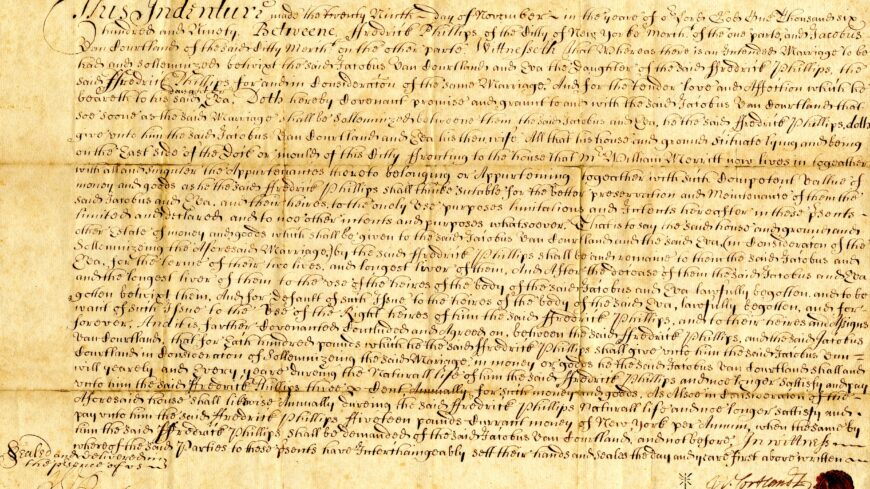 This Indenture made the twenty Ninth day of November in the yeare of o^r Lord God One Thousand six
hundred and Ninety. Betweene ffredrick Phillips of the Citty of New Yorke March^t. of the one parte, and Jacobus
Van Courtland of the said Citty March^t. on the other parte. Wittnesseth that Whereas there is an Intended Marriage to be
had and sollemnized betwixt the said Jacobus Van Courtland and Eva the Daughter of the said ffredrick Phillips, the
said ffredrick Phillips for and in Consideraton of the same Marriage, And for the tender love and Affection which he
beareth to his said daughter Eva. Doth hereby Covenant promise and graunt to and with the said Jacobus Van Courtland that
soe soone as the said Marriage shall be sollemnized betweene them the said Jacobus and Eva, he the said ffredrick Phillips, doth
give unto him the said Jacobus Van Courtland and Eva his then wife All that his house and ground situate lying and being
on the East side of the Dock or mould of this Citty ffronting to the house that M^r William Merritt now lives in togeather
with all and singuler the Appurtenances thereto belonging or Appurteining togeather with such Competent vallue of
money and goods as he the said ffredrick Phillips shall thinke suitable for the better preservation and Maintenance of them the
said Jacobus and Eva, and their heires, to the onely Use purposes limitations and Intents hereafter in these p^rsents
limited and declared, and to noe other intents and purposes whatsoever. That is to say the said house and ground and
other Estate of money and goods which shall be given to the said Jacobus Van Courtland and the said Eva (in Consideraton of the
Sollemnizing the Aforesaid Marriage,) by the said ffredrick Phillips shall be and remane to them the said Jacobus and
Eva, for the terme of their two lives, and longest liver of them, And After the decease of them the said Jacobus and Eva
and the longest liver of them to the use of the heires of the body of the said Jacobus and Eva lawfully begotten, and to be
gotten betwixt them, And for default of such Issue to the heires of the body of the said Eva, lawfully begotten, and for
want of such Issue to the Use of the Right heires of him the said ffredrick Phillips, and to their heires and Assigns
forever. And it is farther Covenanted Concluded and Agreed on, between the said ffredrick Phillips, and the said Jacobus
Van Courtland, that for Each hundred pounds which he the said ffredrick Phillips shall give unto him the said Jacobus Van
Courtland in Consideraton of Sollemnizing the said Mariage, in money or goods he the said Jacobus Van Courtland shall and
will yearely and Every yeare during the Naturall life of him the said ffredrick Phillips and noe longer sattisfy and pay
unto him the said ffredrick Phillips three p Cent, Annually, for such money and goods. As Alsoe in Consideraton of the
Aforesaid house shall likewise Annually during the said ffredrick Phillips Naturall life and noe longer sattisfy and
pay unto him the said ffredrick Phillips ffiveteen pounds Currant money of New Yorke per Annum, when the same by
him the said ffredrick Phillips shall be demanded of the said Jacobus Van Courtland, and not before, In wittness
whereof the said Parties to these p^rsents have Interchangeably sett their hands and seales the day and yeare first above written
Sealed and Delivered in
the presence of us